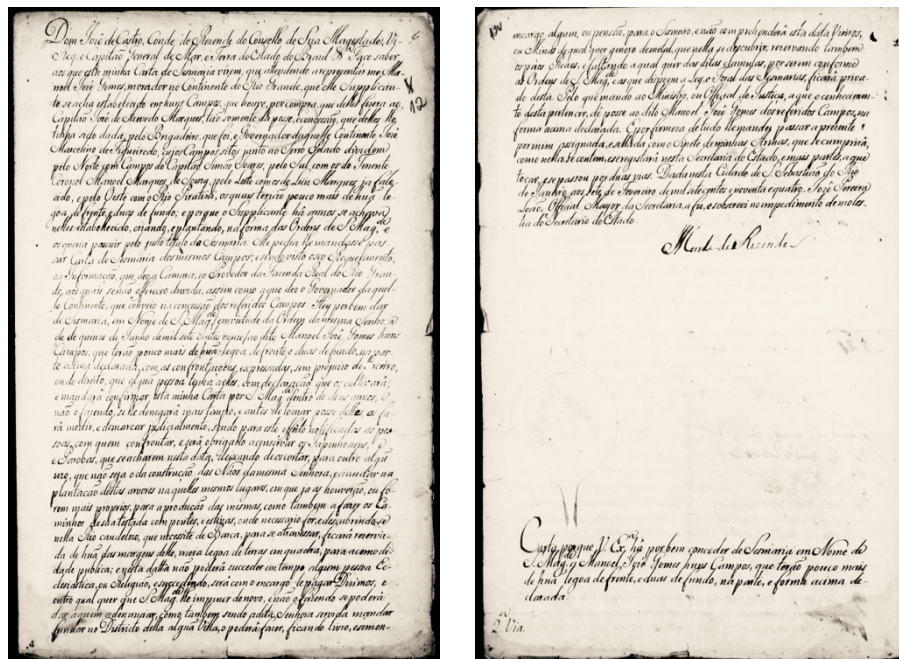 Dom José de Castro, Conde de Rezende do Conselho de Sua Magestade, Vi- 6
Rey, e Capitão General de Mar, e Terra do Estado do Brazil &ª. Faço saber
aos que esta minha Carta de Sesmaria virem, que attendendo a reprezentarme Ma-
noel José Gomes, morador no Continente do Rio Grande, que elle Supplican-
te se acha estabelecido em huns Campos, que houve, por compra, que delles fizera ao
Capitão José de Azevedo Marques, tão somente da posse, e concessão, que delles lhe
12
tinha sido dada, pelo Brigadeiro, que foi, e Governador daquelle Continente José
Marcelino de Figueiredo, cujos Campos sitos junto ao Serro Pelado dividem
pelo Norte com Campos do Capitão Simão Soares, pelo Sul, com os do Tenente
Coronel Manoel Marques de Souza, pelo Leste com os de Luiz Marques já fale-
cido, e pelo Oeste com o Rio Piratini, os quaes terião pouco mais de huã le-
goa de frente, e duas de fundo; e porque o Supplicante há annos se achava
nelles estabelecido, criando, e plantando, na forma das Ordens de S. Mag.de, e
os queria possuir pelo justo titulo de Sesmaria. Me pedia lhe mandasse pas-
sar Carta de Sesmaria dos mesmos Campos; e sendo visto o seo Requerimento,
e a Informação, que deo a Camara, e o Provedor da Fazenda Real do Rio Gran-
de, aos quaes se não offereceo duvida, assim como a que deo o Governador daquel-
le Continente, que conveio na concessão dos referidos Campos. Hey por bem dar
de Sesmaria, em Nome de S. Mag.de, em virtude da Ordem da mesma Senhora
de de quinze de Junho de mil sete centos e onze ao dito Manoel José Gomes huns
Campos, que terão pouco mais de huã legoa de frente, e duas de fundo, na par-
te acima declarada, com as confrontações, expressadas, sem prejuizo de terceiro,
ou do direito, que algua pessoa tenha a elles, com declaração que os cultivará;
e mandará confirmar esta minha Carta por S. Mag.de dentro de dous annos, e
não o fazendo, se lhe denegará mais tempo, e antes de tomar posse delles os fa-
rá medir, e demarcar judicialmente, sendo para este effeito notificadas as pes-
soas, com quem confrontar, e será obrigado a conservar os Tapinhoans, e
e Perobas, que se acharem nesta data, deixando de os cortar, para outro algũ
uzo, que não seja o da construção das Náos da mesma Senhora, e a cuidar na
plantação destas arvores naquelles mesmos lugares, em que já as houverão, ou fo-
rem mais proprios, para a produção das mesmas, como tambem a fazer os Ca-
minhos de sua testada com pontes, e estivas, onde necessario for, e descubrindo-se
nella Rio caudeloso, que necessite de Barca, para se atravessar, ficará reserva-
da de huã das margens delle, meya legoa de terras em quadra, para a comodi-
dade publica; e nesta data não poderá succeder em tempo algum pessoa Ec-
clesiastica, ou Religião, e succedendo, será com o encargo de pagar Dizimos, e
outro qual quer que S. Mag.de lhe impuzer de novo, e não o fazendo se poderá
dar a quem a denunciar, como tambem sendo a dita Senhora servida mandar
fundar no Districto della algua Villa, o poderá fazer, ficando livre, e sem en-
encargo algum, ou pensão, para o Sesmeiro, e não comprehenderá esta data Vieiros,
ou Minas de qual quer genero de metal, que nella se descubrir, rezervando tambem
os páos Reaes, e faltando a qual quer das ditas clausulas, por serem conforme
as Ordens de S. Mag.de, e as que dispoem a Ley, e Foral das Sesmarias, ficará priva-
do desta. Pelo que mando ao Ministro, ou Official de Justiça, a que o conhecimen-
to desta pertencer, dê posse ao dito Manoel José Gomes dos referidos Campos, na
forma acima declarada. E por firmeza de tudo lhe mandei passar a prezente
por mim assignada, e sellada com o Sinete de minhas Armas, que se cumprirá,
como nella se contem, e se registará nesta Secretaria do Estado, e mais partes, a que
tocar, e se passou por duas vias. Dada nesta Cidade de S. Sebastião do Rio
de Janeiro, aos sete de Fevereiro de mil setecentos e noventa e quatro. José Pereira
Leão, Official Mayor, da Secretaria, a fiz, e sobscrevi no impedimento de moles-
tia do Secretario do Estado.
Conde de Rezende
Carta porque V. Ex.ª há por bem conceder de Sesmaria em Nome de
S. Mag.de a Manoel José Gomes huns Campos, que terão pouco mais
de huã legoa de frente, e duas de fundo, na parte, e forma acima de-
clarada.
2.ª Via.